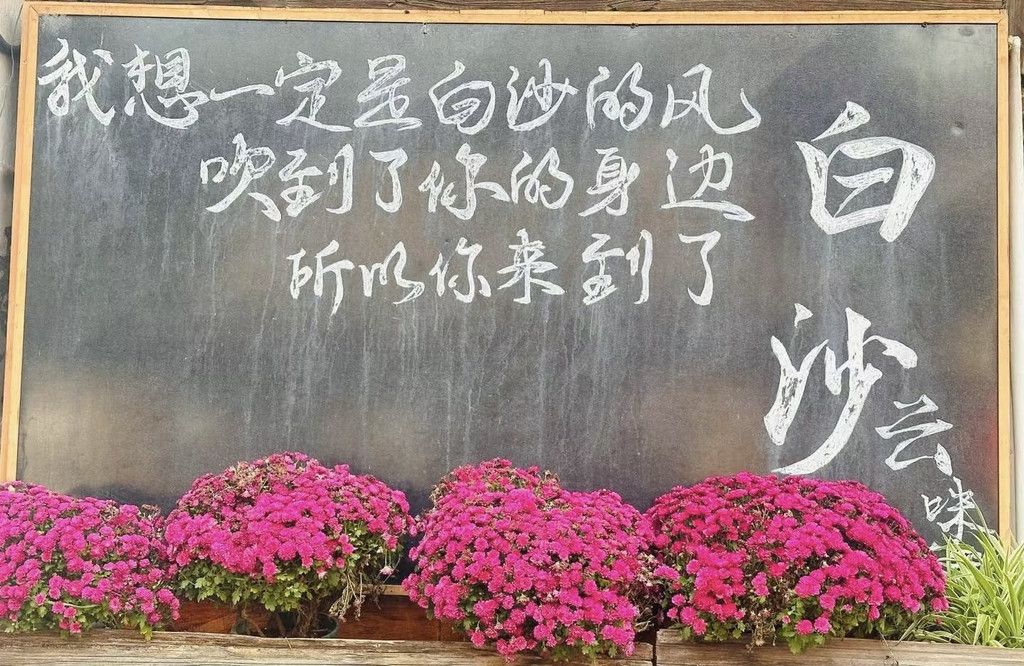 我想一定是白沙的风
吹到了你的身边
所以你来到了
白沙
云咪